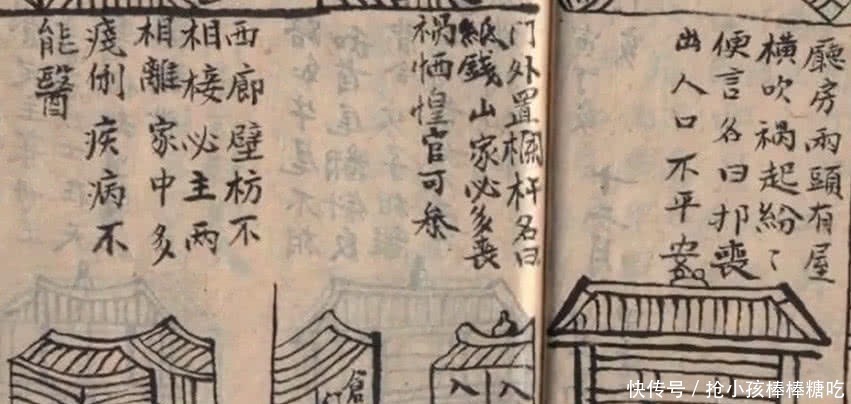 廳房兩頭有屋
横吹禍起紛〻
便言名曰邦喪
出人口不平安
门外置欄杆名曰
紙錢山家必多丧
禍恓惶官可叅
西廊壁枋不
相接必主兩
相離家中多
痍㑡疾病不
能醫
倉
入入
快传号/抢小孩棒棒糖吃